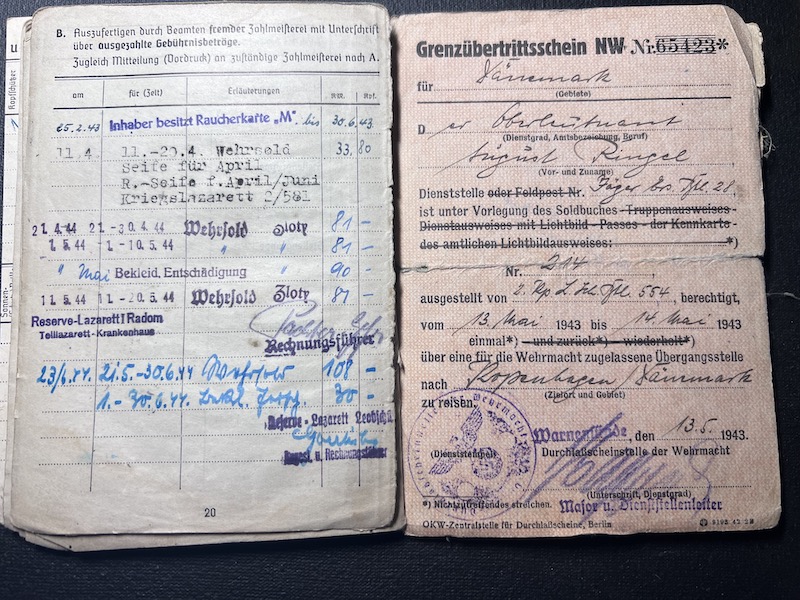 B. Auszufertigen durch Beamten fremder Zahlmeisterei mit Unterschrift
über ausgezahlte Gebührnisbeträge.
Zugleich Mitteilung (Vordruck) an zuständige Zahlmeisterei nach A.
am für (Zeit) Erläuterungen RM. Rpf.
25.2.43 Inhaber besitzt Raucherkarte „M“. bis 30.6.43
11.4. 11.-20.4. Wehrsold 33,80
Seife für April
R.-Seife f.April/Juni
Kriegslazarett 2/581
21.4.44 21.-30.4.44 Wehrsold Zloty 81 -
1.5.44 1.-10.5.44 " " 81 -
" Mai Bekleid, Entschädigung " 90 -
11.5.44 11.-20.5.44 Wehrsold Zloty 81 -
Reserve-Lazarett I Radom
Teillazarett-Krankenhaus
Rechnungsführer
23/6.44 21.5.-30.6.44 Wehrsold 108 -
1.-30.6.44 30 -
Reserve-Lazarett Leobschü
u. Rechnungsführer
20
Grenzübertrittsschein NW Nr. 65423*
für Dänemark
(Gebiete)
D er Oberleutnant
(Dienstgrad, Amtsbezeichnung, Beruf)
August Ringel
(Vor- und Zuname)
Dienststelle oder Feldpost-Nr. Jäger Ers. Btl. 28,
ist unter Vorlegung des Soldbuches - Truppenausweises -
Dienstausweises mit Lichtbild - Passes - der Kennkarte -
des amtlichen Lichtbildausweises: *)
Nr. 214
ausgestellt von 2. Kp 554, berechtigt,
vom 13. Mai 1943 bis 14. Mai 1943
einmal*) - und zurück*) - wiederholt*)
über eine für die Wehrmacht zugelassene Übergangsstelle
nach Kopenhagen / Dänemark
(Zielort und Gebiet)
zu reisen.
Warnemünde, den 13.5. 1943.
(Dienststempel) Durchlaßscheinstelle der Wehrmacht
(Unterschrift, Dienstgrad)
*) Nichtzutreffendes streichen. Major u. Dienststellenleiter
OKW-Zentralstelle für Durchlaßscheine, Berlin